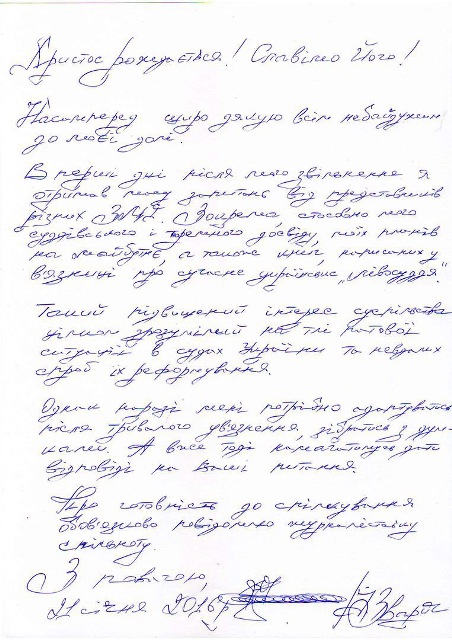 Христос рождається! Славімо Його!
Насамперед щиро дякую всім небайдужим
до моєї долі.
В перші дні після мого звільнення я
отримав масу запитань від представників
різних ЗМІ. Зокрема, стосовно мого
суддівського і тюремного досвіду, моїх планів
на майбутнє, а також книг, написаних у
в'язниці про сучасне українське „лівосуддя".
Такий підвищений інтерес суспільства
цілком зрозумілий на тлі патової
ситуації в судах України та невдалих
спроб їх реформування.
Однак наразі мені потрібно адаптуватись
після тривалого ув'язнення, зібратись з дум-
ками. А вже тоді намагатимусь дати
відповіді на Ваші питання.
Про готовність до спілкування
обов'язково повідомлю журналістську
спільноту.
З повагою,
21 січня 2016р. Зварич